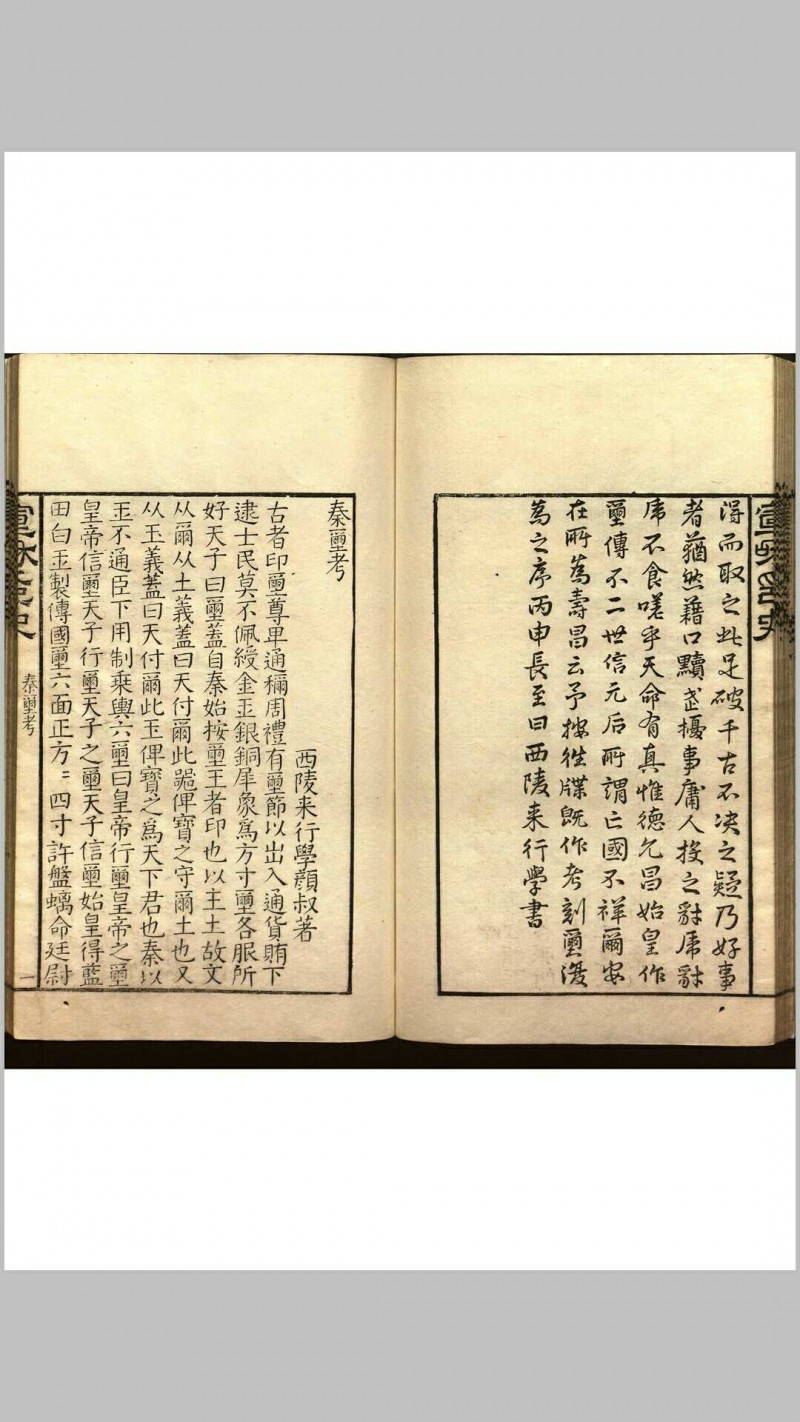 得而取之此足破千古不决之疑乃好事
者蕕然藉口黷武擾事庸人投之豺虎豺
虎不食嗟乎天命有真惟德允昌始皇作
璽傳不二世信元后所謂亡國不祥爾安
在所為壽昌云予按徃牒既作考刻璽復
為之序丙申長至日西陵来行學書
宣和印史
秦璽考
西陵来行學顔叔著
古者印璽尊卑通稱周禮有璽節以出入通貨賄下
逮士民莫不佩綬金玉銀銅犀象爲方寸璽各服所
好天子曰璽蓋自秦始按璽王者印也以主土故文
从爾从土義蓋曰天付爾此嵬俾寶之守爾土也又
从玉義蓋曰天付爾此玉俾寶之爲天下君也秦以
玉不通臣下用制乘輿六璽曰皇帝行璽皇帝之璽
皇帝信璽天子行璽天子之璽天子信璽始皇得藍
田白玉製傳國璽六面正方〻四寸許盤螭命廷尉
秦璽考
一